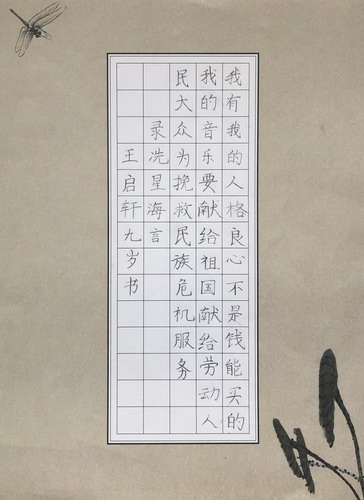 我有我的人格良心不是钱能买的
我的音乐要献给祖国献给劳动人
民大众为挽救民族危机服务
录冼星海言
王启轩九岁书